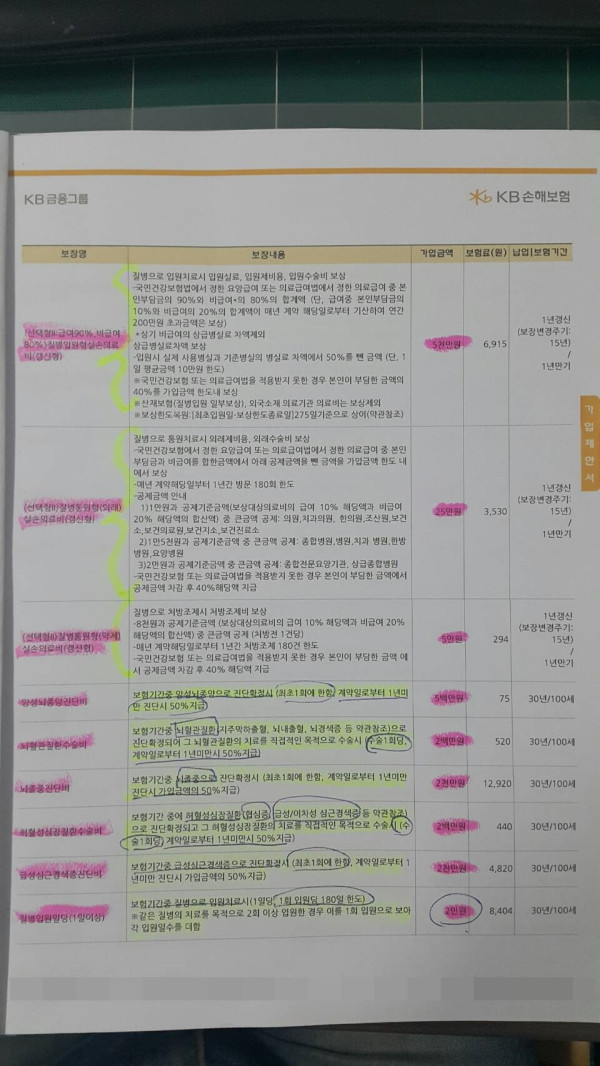 KB금융그룹
KB손해보험
보장명 보장내용 가입금액 보험료(원) 납입|보험기간
(선택형II:급여90%,비급여
80%)질병입원형실손의료
비(갱신형)
질병으로 입원치료시 입원실료, 입원제비용, 입원수술비 보상
-국민건강보험법에서 정한 요양급여 또는 의료급여법에서 정한 의료급여 중 본
인부담금의 90%와 비급여*의 80%의 합계액 (단, 급여중 본인부담금의
10%와 비급여의 20%의 합계액이 매년 계약 해당일로부터 기산하여 연간
200만원 초과금액은 보상)
*상기 비급여의 상급병실료 차액제외
상급병실료차액 보상
-입원시 실제 사용병실과 기준병실의 병실료 차액에서 50%를 뺀 금액 (단, 1
일 평균금액 10만원 한도)
※국민건강보험 또는 의료급여법을 적용받지 못한 경우 본인이 부담한 금액의
40%를 가입금액 한도내 보상
※산재보험(질병입원 일부보상), 외국소재 의료기관 의료비는 보상제외
※보상한도복원:[최초입원일·보상한도종료일]275일기준으로 상이(약관참조)
5천만원 6,915
1년갱신
(보장변경주기:
15년)
/
1년만기
(선택형II)질병통원형(외래)
실손의료비(갱신형)
질병으로 통원치료시 외래제비용, 외래수술비 보상
-국민건강보험에서 정한 요양급여 또는 의료급여법에서 정한 의료급여 중 본인
부담금과 비급여를 합한금액에서 아래 공제금액을 뺀 금액을 가입금액 한도 내
에서 보상
-매년 계약해당일부터 1년간 방문 180회 한도
-공제금액 안내
1)1만원과 공제기준금액(보상대상의료비의 급여 10% 해당액과 비급여
20% 해당액의 합산액) 중 큰금액 공제: 의원,치과의원, 한의원,조산원,보건
소,보건의료원,보건지소,보건진료소
2)1만5천원과 공제기준금액 중 큰금액 공제: 종합병원,병원,치과 병원,한방
병원,요양병원
3)2만원과 공제기준금액 중 큰금액 공제: 종합전문요양기관, 상급종합병원
-국민건강보험 또는 의료급여법을 적용받지 못한 경우 본인이 부담한 금액에서
공제금액 차감 후 40%해당액 지급
25만원 3,530
1년갱신
(보장변경주기:
15년)
/
1년만기
(선택형II)질병통원형(약제)
실손의료비(갱신형)
질병으로 처방조제시 처방조제비 보상
-8천원과 공제기준금액 (보상대상의료비의 급여 10% 해당액과 비급여 20%
해당액의 합산액) 중 큰금액 공제 (처방전 1건당)
-매년 계약해당일로부터 1년간 처방조제 180건 한도
-국민건강보험 또는 의료급여법을 적용받지 못한 경우 본인이 부담한 금액 에
서 공제금액 차감 후 40% 해당액 지급
5만원 294
1년갱신
(보장변경주기:
15년)
/
1년만기
양성뇌종양진단비
보험기간중 양성뇌종양으로 진단확정시 (최초1회에 한함, 계약일로부터 1년미
만 진단시 50%지급)
5백만원 75 30년/100세
뇌혈관질환수술비
보험기간중 뇌혈관질환(지주막하출혈, 뇌내출혈, 뇌경색증 등 약관참조)으로
진단확정되어 그 뇌혈관질환의 치료를 직접적인 목적으로 수술시 (수술1회당,
계약일로부터 1년미만시 50%지급)
2백만원 520 30년/100세
뇌졸중진단비
보험기간중 뇌졸중으로 진단확정시 (최초1회에 한함, 계약일로부터 1년미만
진단시 가입금액의 50%지급)
2천만원 12,920 30년/100세
허혈성심장질환수술비
보험기간 중에 허혈성심장질환(협심증, 급성/이차성 심근경색증 등 약관참조)
으로 진단확정되고 그 허혈성심장질환의 치료를 직접적인 목적으로 수술시 (수
술1회당, 계약일로부터 1년미만시 50%지급)
2백만원 440 30년/100세
급성심근경색증진단비
보험기간중 급성심근경색증으로 진단확정시 (최초1회에 한함, 계약일로부터 1
년미만 진단시 가입금액의 50%지급)
2천만원 4,820 30년/100세
질병입원일당(1일이상)
보험기간중 질병으로 입원치료시(1일당, 1회 입원당 180일 한도)
※같은 질병의 치료를 목적으로 2회 이상 입원한 경우 이를 1회 입원으로 보아
각 입원일수를 더함
2만원 8,404 30년/100세
가입제안서